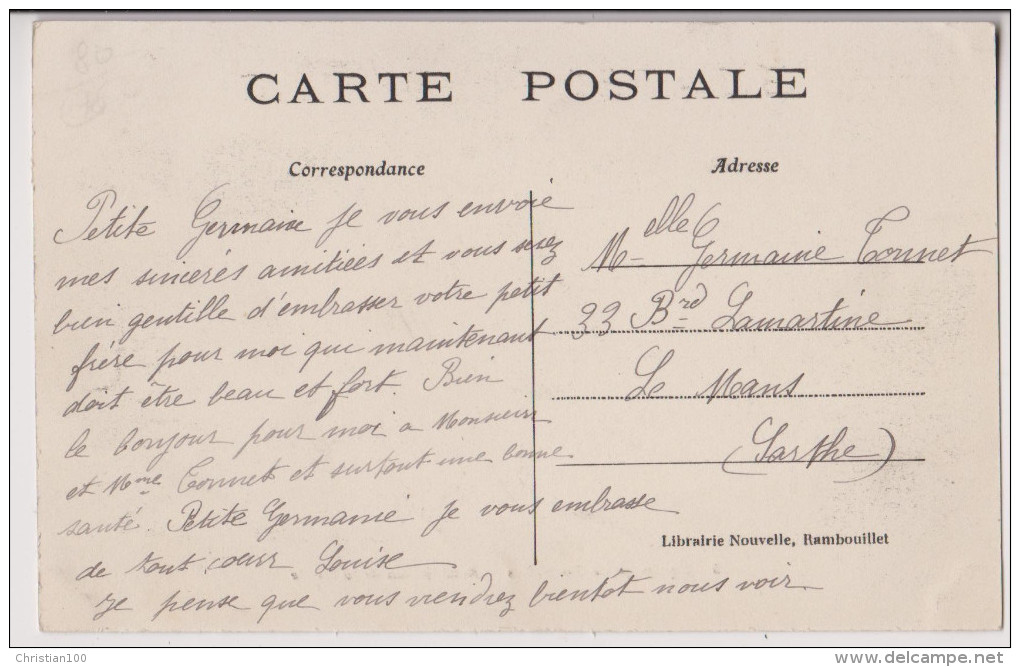 CARTE POSTALE
Correspondance
Petite Germaine je vous envoie
mes sincéres amitiées et vous serez
bien gentille d'embrasser votre petit
frére pour moi qui maintenant
doit être beau et fort. Bien
le bonjour pour moi a Monsieur
et Mme Tonnet et surtout une bonne
santé. Petite Germanie je vous embrasse
de tout cœur Louise
je pense que vous viendrez bientôt nous voir
Adresse
Melle Germaine Tonnet
33 Brd Lamartine
Le Mans
(Sarthe)
Librairie Nouvelle, Rambouillet
Christian100